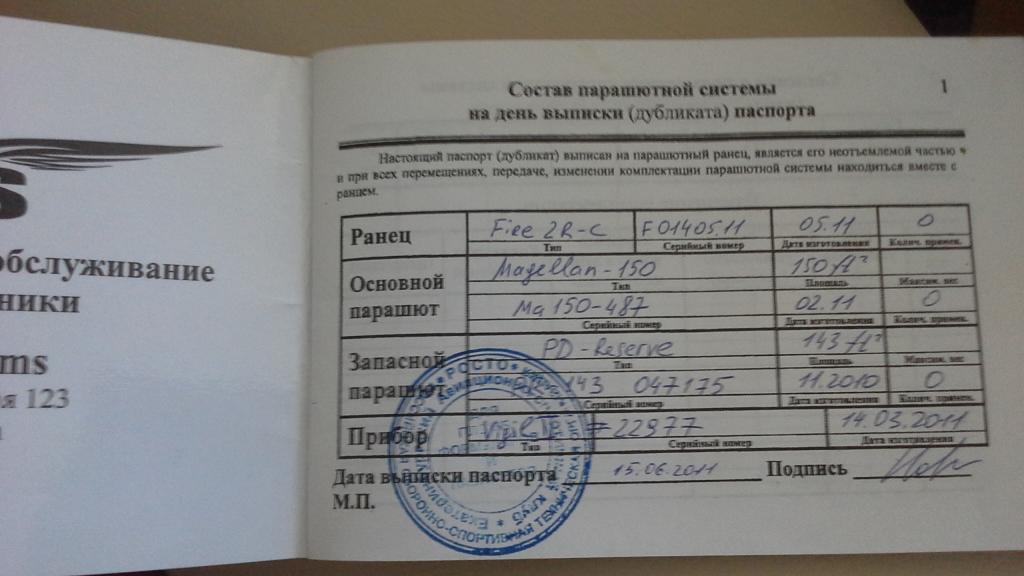 S
обслуживание
ники
ms
я 123
Состав парашютной системы
1
на день выписки (дубликата) паспорта
Настоящий паспорт (дубликат) выписан на парашютный ранец, является его неотъемлемой частью
и при всех перемещениях, передаче, изменении комплектации парашютной системы находиться вместе с
ранцем.
Ранец Fire 2R-C F01405.11 05.11 0
Тип Серийный номер Дата изготовления Колич. примен.
Основной парашют Magellan-150 150 ft²
Тип Площадь Максим. вес
Ma 150-487 02.11 0
Серийный номер Дата изготовления Колич. примен.
Запасной парашют PD-Reserve 143 ft²
Тип Площадь Максим. вес
143 047175 11.2010 0
Серийный номер Дата изготовления Колич. примен.
Прибор #22977 14.03.2011
Тип Серийный номер Дата изготовления
Дата выписки паспорта 15.06.2011 Подпись
М.П.
РОСТО
СПОРТИВНАЯ ТЕХНИЧЕСКАЯ